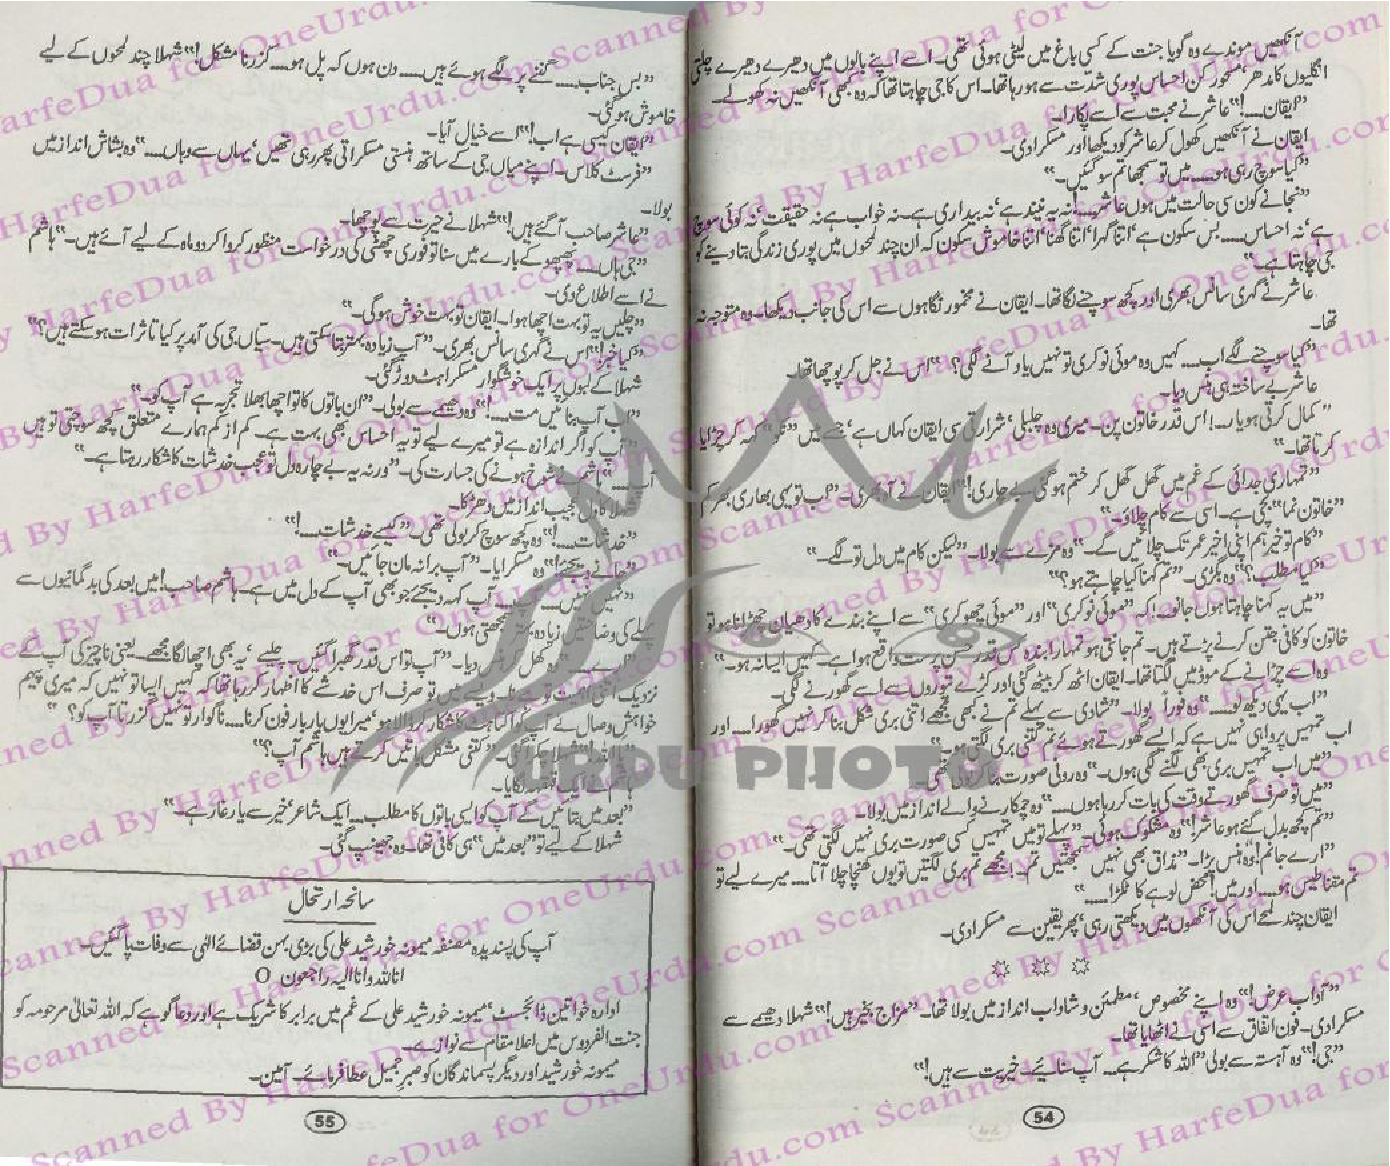 آنکھیں موندے وہ گویا جنت کے کسی باغ میں لیٹی ہوئی تھی۔ اسے اپنے بالوں میں دھیرے دھیرے چلتی
انگلیوں کا مدھر، مسحور کن احساس پوری شدت سے ہو رہا تھا۔ اس کا جی چاہتا تھا کہ وہ کبھی آنکھیں نہ کھولے۔
”ایقان....!“ عاشر نے محبت سے اسے پکارا۔
ایقان نے آنکھیں کھول کر عاشر کو دیکھا اور مسکرا دی۔
”کیا سوچ رہی ہو.... میں تو سمجھا تم سو گئیں۔“
”نجانے کون سی حالت میں ہوں عاشر....! نہ یہ نیند ہے‘ نہ بیداری ہے۔ نہ خواب ہے نہ حقیقت‘ نہ کوئی سوچ
ہے‘ نہ احساس..... بس سکون ہے‘ اتنا گہرا‘ اتنا گھنا‘ اتنا خاموش سکون کہ ان چند لمحوں میں پوری زندگی بتا دینے کو
جی چاہتا ہے۔“
عاشر نے گہری سانس بھری اور کچھ سوچنے لگا تھا۔ ایقان نے مخمور نگاہوں سے اس کی جانب دیکھا۔ وہ متوجہ نہ
تھا۔
”کیا سوچنے لگے اب.... کہیں وہ موئی نوکری تو نہیں یاد آنے لگی؟“ اس نے جل کر پوچھا تھا۔
عاشر بے ساختہ ہی ہنس دیا۔
”کمال کرتی ہو یار۔! اس قدر خاتون پن۔ میری وہ چلبلی‘ شرارتی سی ایقان کہاں ہے‘ جسے میں کہہ کر چڑایا
کرتا تھا۔“
”تمہاری جدائی کے غم میں گھل گھل کر ختم ہو گئی بے چاری!“ ایقان نے آہ بھری۔ ”اب تو یہی بھاری بھرکم
”خاتون نما“ بچی ہے۔ اسی سے کام چلاؤ۔“
”کام تو خیر ہم اپنی اخیر عمر تک چلائیں گے۔“ وہ مزے سے بولا۔ ”لیکن کام میں دل تو لگے۔“
”کیا مطلب؟“ وہ بگڑی۔ ”تم کہنا کیا چاہتے ہو؟“
”میں یہ کہنا چاہتا ہوں جانو۔! کہ ”موئی نوکری“ اور ”موئی چھوکری“ سے اپنے بندے کا دھیان چھڑانا ہو تو
خاتون کو کافی جتن کرنے پڑتے ہیں۔ تم جانتی ہو تمہارا بندہ کس قدر حسن پرست واقع ہوا ہے۔ کہیں ایسا نہ ہو۔“
وہ اسے چڑانے کے موڈ میں لگتا تھا۔ ایقان اٹھ کر بیٹھ گئی اور کڑے تیوروں سے اسے گھورنے لگی۔
”اب یہی دیکھ لو....“ وہ فوراً بولا۔ ”شادی سے پہلے تم نے کبھی مجھے اتنی بری شکل بنا کر نہیں گھورا.... اور
اب تمہیں پروا ہی نہیں ہے کہ ایسے گھورتے ہوئے تم کتنی بری لگتی ہو۔“
”میں اب تمہیں بری بھی لگنے لگی ہوں۔“ وہ رونی صورت بنا کر بولی تھی۔
”میں تو صرف گھورتے وقت کی بات کر رہا ہوں....“ وہ چمکارنے والے انداز میں بولا۔
”تم کچھ بدل گئے ہو عاشر!“ وہ مشکوک ہوئی۔ ”پہلے تو میں تمہیں کسی صورت بری نہیں لگتی تھی۔“
”ارے جانم! وہ ہنس پڑا۔ ”مذاق بھی نہیں سمجھتیں تم۔! مجھے تم بری لگتیں تو یوں کھنچا چلا آتا.... میرے لیے تو
تم مقناطیس ہو.... اور میں! محض لوہے کا ٹکڑا.....“
ایقان چند لمحے اس کی آنکھوں میں دیکھتی رہی‘ پھر یقین سے مسکرا دی۔
”آداب عرض!“ وہ اپنے مخصوص‘ مطمئن و شاداب انداز میں بولا تھا۔ ”مزاج بخیر ہیں!“ شہلا دھیمے سے
مسکرا دی۔ فون اتفاق سے اسی نے اٹھایا تھا۔
”جی!“ وہ آہستہ سے بولی ”اللہ کا شکر ہے۔ آپ سنائیے۔ خیریت سے ہیں!“
54
”بس جناب..... گننے پر لگے ہوئے ہیں..... دن ہوں کہ پل ہو.... گزرنا مشکل!“ شہلا چند لمحوں کے لیے
خاموش ہو گئی۔
”ایقان کیسی ہے اب!“ اسے خیال آیا۔
”فرسٹ کلاس۔ اپنے میاں جی کے ساتھ ہنستی مسکراتی پھر رہی تھیں‘ یہاں سے وہاں....“ وہ بشاش انداز میں
بولا۔
”عاشر صاحب آ گئے ہیں!“ شہلا نے حیرت سے پوچھا۔
”جی ہاں.... پھپھو کے بارے میں سنا تو فوری چھٹی کی درخواست منظور کروا کر دو ماہ کے لیے آئے ہیں۔“ ہاشم
نے اسے اطلاع دی۔
”چلیں یہ تو بہت اچھا ہوا۔ ایقان تو بہت خوش ہو گی۔“
”کیا خبر!“ اس نے گہری سانس بھری۔ ”آپ زیادہ بہتر بتا سکتی ہیں۔ سیّاں جی کی آمد پر کیا تاثرات ہو سکتے ہیں؟“
شہلا کے لبوں پر ایک خوشگوار مسکراہٹ دوڑ گئی۔
”اب آپ بنائیں مت....!“ وہ دھیمے سے بولی۔ ”ان باتوں کا تو اچھا بھلا تجربہ ہے آپ کو۔“
”آپ کو اگر اندازہ ہے تو میرے لیے تو یہ احساس بھی بہت ہے۔ کم از کم ہمارے متعلق کچھ سوچتی تو ہیں
آپ.....“ ہاشم نے شوخ ہونے کی جسارت کی۔ ”ورنہ یہ بے چارہ دل تو عجب خدشات کا شکار رہتا ہے۔“
شہلا کا دل عجیب انداز میں دھڑکا۔
”خدشات....!“ وہ کچھ سوچ کر بولی تھی۔ ”کیسے خدشات....!“
”جانے دیجئے!“ وہ مسکرایا۔ ”آپ برا نہ مان جائیں۔“
”نہیں نہیں.... آپ کہہ دیجئے جو بھی آپ کے دل میں ہے۔ ہاشم صاحب! میں بعد کی بدگمانیوں سے
پہلے کی وضاحتیں زیادہ بہتر سمجھتی ہوں۔“
وہ کھل کر ہنس دیا۔ ”آپ تو اس قدر گھبرا گئیں۔ چلیے‘ یہ بھی اچھا لگا مجھے۔ یعنی ناچیز کی آپ کے
نزدیک اتنی اہمیت تو ہے۔ ویسے میں تو صرف اس خدشے کا اظہار کر رہا تھا کہ کہیں ایسا تو نہیں کہ میری پیہم
خواہش وصال نے آپ کو اکتاہٹ کا شکار کر ڈالا ہو‘ میرا یوں بار بار فون کرنا.... ناگوار تو نہیں گزرتا آپ کو؟“
شہلا چکرا گئی۔ ”کتنی مشکل باتیں کرتے ہیں ہاشم آپ؟“
ہاشم نے ایک قہقہہ لگایا۔
”بعد میں بتائیں گے آپ کو ایسی باتوں کا مطلب.... ایک شاعر‘ خیر سے یار غار ہے۔“
شہلا کے لیے تو ”بعد میں“ ہی کافی تھا۔ وہ جھینپ گئی۔
سانحہ ارتحال
آپ کی پسندیدہ مصنفہ میمونہ خورشید علی کی بڑی بہن قضائے الٰہی سے وفات پا گئیں۔
اناللہ وانا الیہ راجعون O
ادارہ خواتین ڈائجسٹ‘ میمونہ خورشید علی کے غم میں برابر کا شریک ہے اور دعا گو ہے کہ اللہ تعالیٰ مرحومہ کو
جنت الفردوس میں اعلا مقام سے نوازے۔
میمونہ خورشید اور دیگر پسماندگان کو صبر جمیل عطا فرمائے۔ آمین۔
55
URDU PHOTO
Scanned By HarfeDua for OneUrdu.com